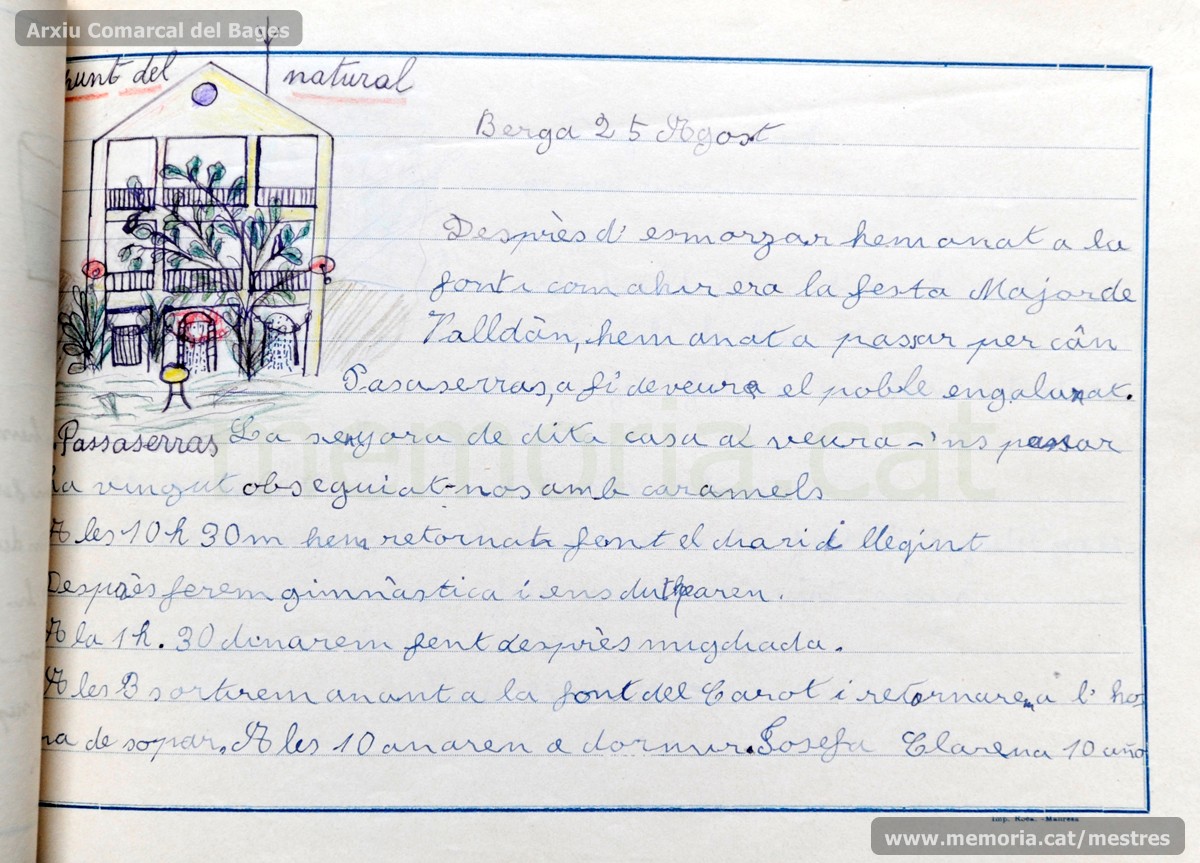 Arxiu Comarcal del Bages
punt del natural
Berga 25 Agost
Desprès d' esmorzar hem anat a la
font i com ahir era la festa Major de
Valldàn, hem anat a passar per cân
Pasaserras, a fi de veura el poble engalanat.
Passaserras La senyora de dita casa al veura-'ns passar
ha vingut obsequiat-nos amb caramels
A les 10 h 30 m hem retornat fent el diari i llegint
Desprès ferem gimnàstica i ens dutxaren.
A la 1 h. 30 dinarem fent desprès migdiada.
A les 3 sortirem anant a la font del Carot i retornarem a l' ho
ra de sopar. A les 10 anaren a dormir. Josefa Clarena 10 año
Imp. Roca. - Manresa
memoria.cat
www.memoria.cat/mestres